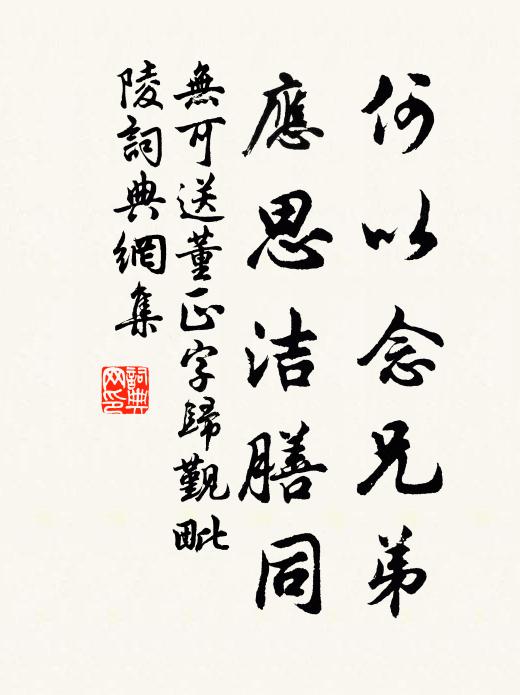 何以念兄弟
應思洁膳同
無可送董正字歸觐毗
陵詞典網集
詞典网印